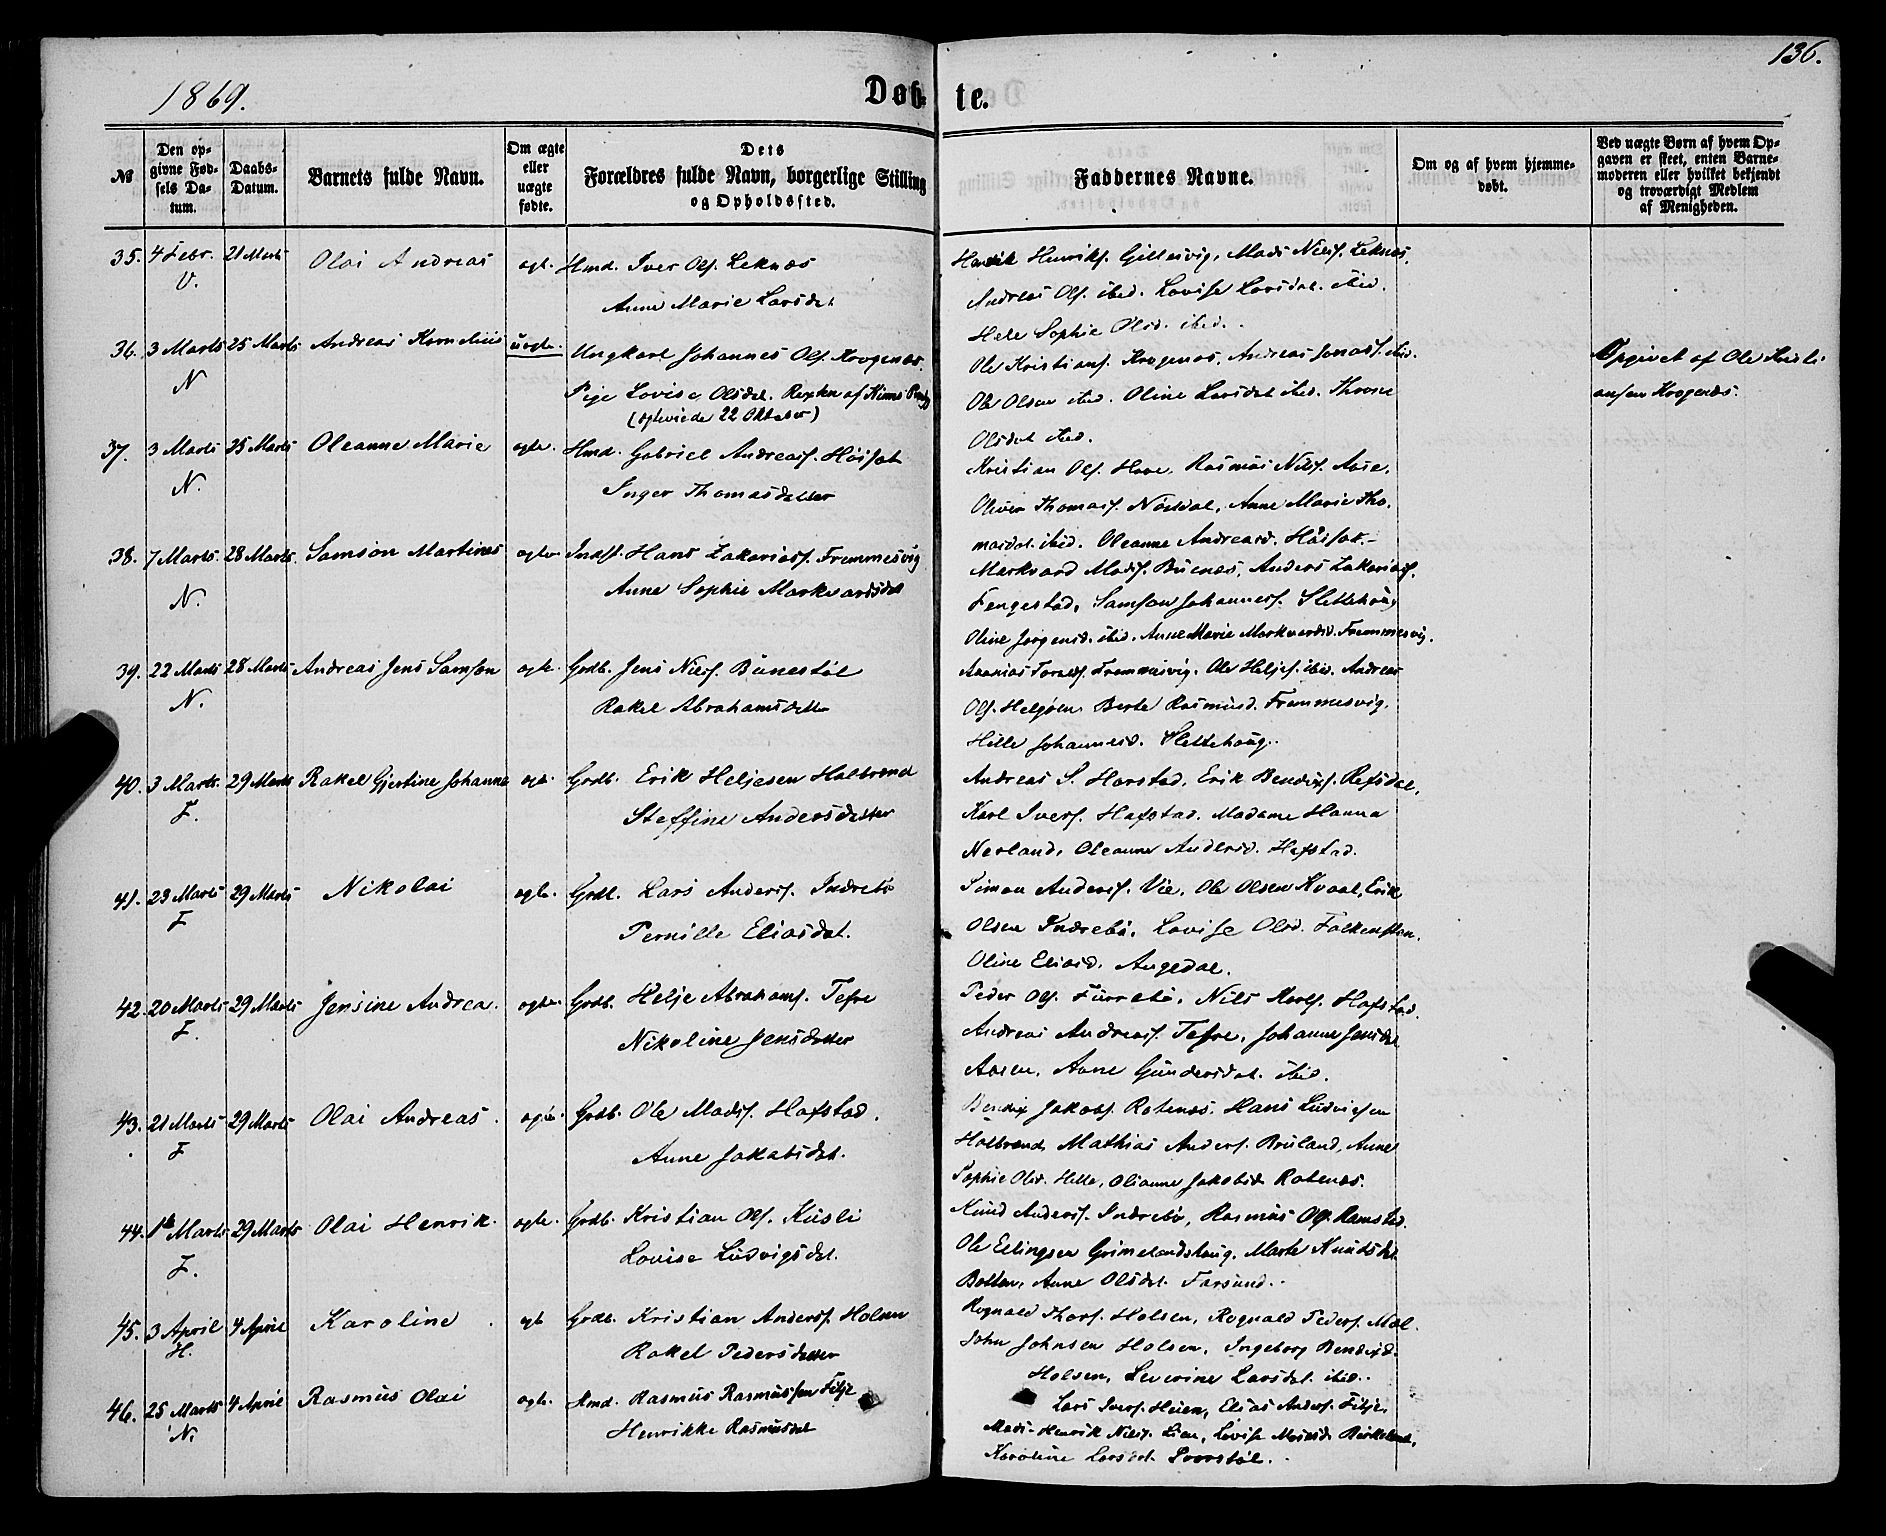 136.
1869.
Døb- te.
№
Den op-
givne Fød-
sels Da-
tum.
Daabs-
Datum.
Barnets fulde Navn.
Om ægte
eller
uægte
fødte.
Dets
Forældres fulde Navn, borgerlige Stilling
og Opholdssted.
Faddernes Navne.
Om og af hvem hjemme-
døbt.
Ved uægte Børn af hvem Op-
gaven er skeet, enten Barne-
moderen eller hvilket bekjendt
og troværdigt Medlem
af Menigheden.
35. 4 Febr. 21 Marts Olai Andreas ægte Hmd. Iver Ols. Leknæs
V.
Anne Marie Larsdt
Henrik Henriks. Gillesvig, Mads Nils. Leknes,
Andreas Ols. ibid. Lovise Larsdat. ibid.
Hele Sophie Olsd. ibid.
36. 3 Marts 25 Marts Andreas Kornelius uægte. Ungkarl Johannes Ols. Krogenæs.
N
Pige Lovise Olsdat.
(ægteviede 22 Oktober)
Ole Kristians. Krogenæs, Andreas Jonass. ibid.
Ole Olsen ibid. Oline Larsdat ibid. Throne
Olsdat ibid.
Opgivet af Ole Kristi
ansen Krogenæs.
37. 3 Marts 25 Marts Oleanne Marie ægte. Hmd. Gabriel Andreass. Høisæt
N.
Inger Thomasdatter
Kristian Ols. Hove, Rasmus Nils. Aase,
Oliver Thomass. Nøsdal, Anne Marie Tho
masdat. ibid. Oleanne Andreasd. Høisæt.
38. 7 Marts 28 Marts. Samson Martines ægte Indst. Hans Zakariass. Fremmesvig
N.
Anne Sophie Markvardsdat
Markvard Mads. Buenæs, Anders Zakariass.
Fengestad, Samson Johanness. Slettehoug
Oline Jørgensd. ibid. Anne Marie Markvardsd. Fremmesvig.
39. 22 Marts 28 Marts Andreas Jens Samson ægte. Grdb. Jens Niels. Bunestøl
N.
Rakel Abrahamsdatter
Fremmesvig. Ole Heljes. ibid. Andreas
Ols. Helgøen Berte Rasmusd. Fremmesvig,
Hille Johannesd. Slettehoug.
40. 3 Marts. 29 Marts Rakel Gjertine Johanne ægte Grdb. Erik Heljesen Halbrend
F.
Steffine Andersdatter
Andreas S. Harstad, Erik Bendixs. Refsdal,
Karl Ivers. Hafstad. Madame Hanna
Nerland, Oleanne Andersd. Hafstad.
41. 23 Marts 29 Marts Nikolai ægte. Grdb. Lars Anders. Indrebø
F
Pernille Eliasdat.
Simon Anders. Vie, Ole Olsen Kvaal, Erik
Olsen Indrebø, Lovise Olsd. Falkensten.
Oline Eliasd. Angedal.
42. 20 Marts 29 Marts Jensine Andrea. ægte Grdb. Helje Abrahams. Tefre
F.
Nikoline Jensdatter
Peder Ols. Furrebø, Nils Karls. Hafstad.
Andreas Andreass. Tefre, Johanne Jensdat
Aasen, Anne Gundersdat. ibid.
43. 21 Marts 29 Marts Olai Andreas. ægte. Grdb. Ole Mads. Hafstad.
F
Anne Jakobsdat.
Bendix Jakobs. Rotenæs. Hans Ludvigsen
Halbrend, Mathias Anders. Bruland, Anne
Sophie Olsd. Hille, Olianne Jakobsd. Rotenæs.
44. 1 Marts 29 Marts Olai Henrik. ægte. Grdb. Kristian Ols. Kusli
F.
Lovise Ludvigsdat.
Knud Anders. Indrebø, Rasmus Ols. Ramstad.
Ole Erlingsen Grimelandshoug. Marte Knudsdat
Botten, Anne Olsdat. Farsund.
45. 3 April 4 April Karoline ægte Grdb. Kristian Anders. Holsen
H.
Rakel Pedersdatter
Rognald Thors. Holsen, Rognald Peders. Mol.
John Johnsen Holsen, Ingeborg Bendixd.
Holsen, Severine Larsdat. ibid.
46. 25 Marts 4 April Rasmus Olai ægte. Hmd. Rasmus Rasmussen Fitje
N.
Henrikke Rasmusdat
Lars Ivers. Heien, Elias Anders. Fitje,
Mads Henrik Nils. Lien, Lovise Madsd.
Karoline Larsdat.